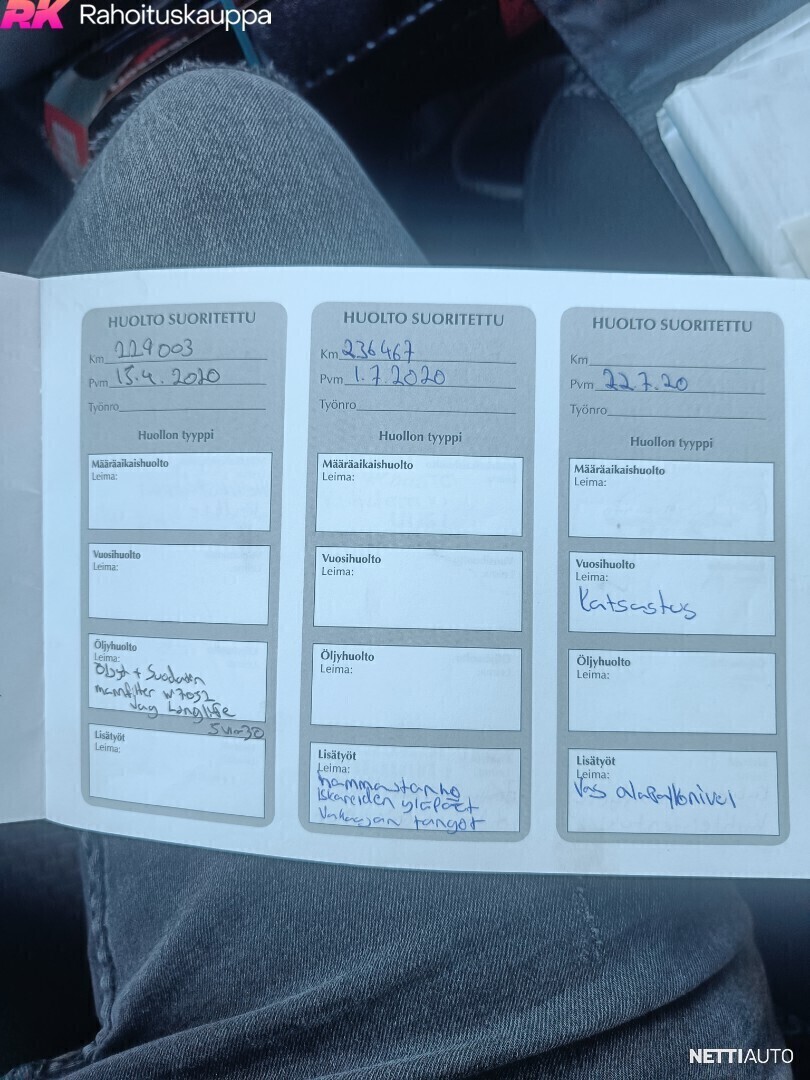 RK Rahoituskauppa
HUOLTO SUORITETTU
Km 229003
Pvm 15.4.2020
Työnro
Huollon tyyppi
Määräaikaishuolto
Leima:
Vuosihuolto
Leima:
Öljyhuolto
Leima:
Öljyt + Suodatin
mannfilter W7052
Vag Longlife
5W-30
Lisätyöt
Leima:
HUOLTO SUORITETTU
Km 236467
Pvm 1.7.2020
Työnro
Huollon tyyppi
Määräaikaishuolto
Leima:
Vuosihuolto
Leima:
Öljyhuolto
Leima:
Lisätyöt
Leima:
hammastanko
Iskareiden yläpäät
Vakaajan tangot
HUOLTO SUORITETTU
Km
Pvm 22.7.20
Työnro
Huollon tyyppi
Määräaikaishuolto
Leima:
Vuosihuolto
Leima:
Katsastus
Öljyhuolto
Leima:
Lisätyöt
Leima:
Vas alapallonivel
NETTIAUTO